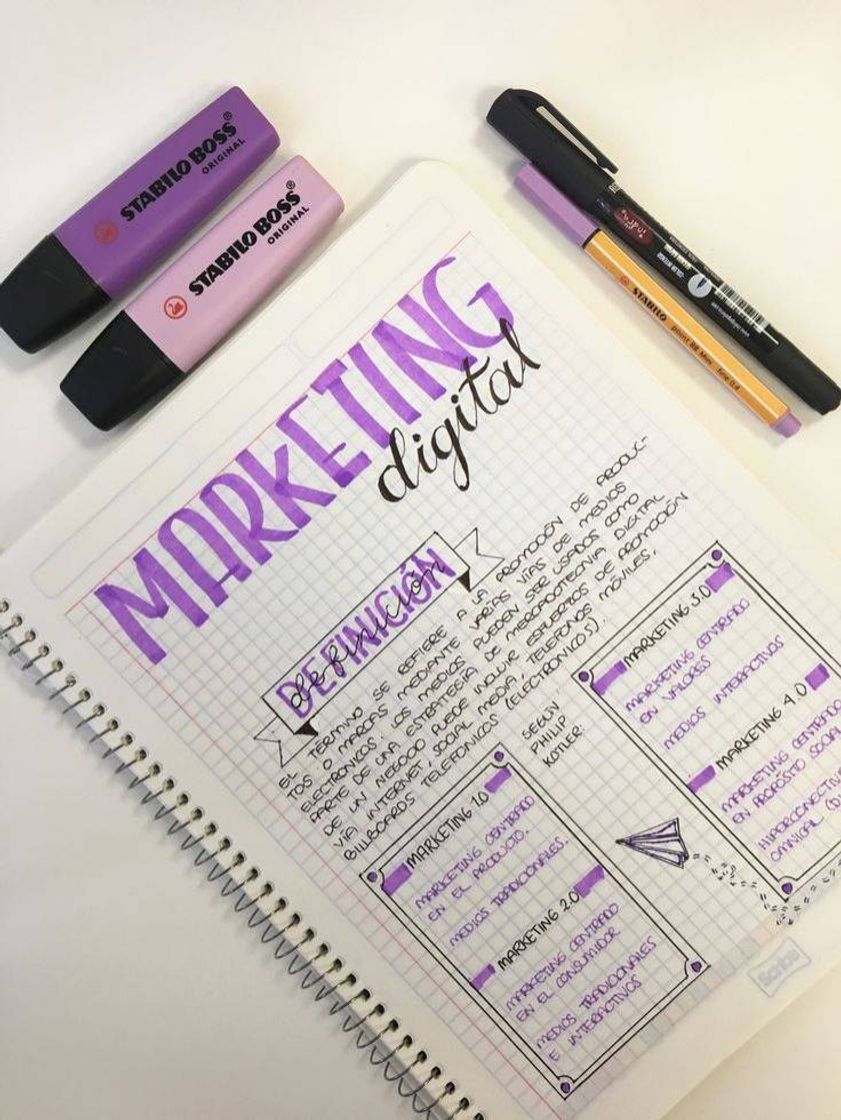 STABILO BOSS®
ORIGINAL
STABILO BOSS®
ORIGINAL
STABILO point 88 Mini fine 0.4
MARKETING
digital
DEFINICIÓN
definición
EL TÉRMINO SE REFIERE A LA PROMOCIÓN DE PRODUC-
TOS O MARCAS MEDIANTE VARIAS VÍAS DE MEDIOS
ELECTRONICOS. LOS MEDIOS PUEDEN SER USADOS COMO
PARTE DE UNA ESTRATEGIA DE MERCADOTECNIA DIGITAL
DE UN NEGOCIO PUEDE INCLUIR ESFUERZOS DE PROMOCIÓN
VÍA INTERNET, SOCIAL MEDIA, TELEFONOS MÓVILES,
BILLBOARDS TELEFONICOS (ELECTRONICOS).
SEGÚN
PHILIP
KOTLER:
MARKETING 1.0
MARKETING CENTRADO
EN EL PRODUCTO.
MEDIOS TRADICIONALES.
MARKETING 2.0
MARKETING CENTRADO
EN EL CONSUMIDOR
MEDIOS TRADICIONALES
E INTERACTIVOS
MARKETING 3.0
MARKETING CENTRADO
EN VALORES
MEDIOS INTERACTIVOS
MARKETING 4.0
MARKETING CENTRADO
EN PROPÓSITO SOCIAL
Scribe